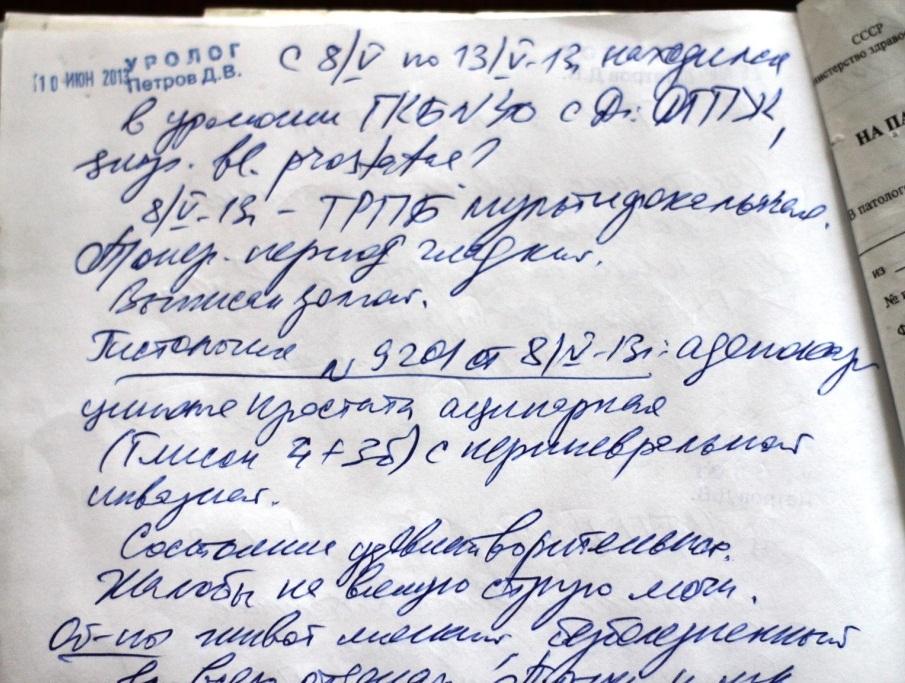 10 ИЮН 2013
УРОЛОГ
Петров Д.В.
с 8/V по 13/V-13г находился
в урологии ГКБ №50 с Ds: ДГПЖ,
bl. prostatae?
8/V-13г - ТРПБ мультифокальная.
П/опер. период гладкий.
Выписан домой.
Гистология №9201 от 8/V-13г: аденокар
цинома простаты ацинарная
(Глисон 4+3б) с периневральной
инвазией.
Состояние удовлетворительное.
Жалобы на вялую струю мочи.
Об-но живот мягкий, безболезненный
во всех отделах. Почки и м/п
СССР
министерство здраво
НА ПА
В патолог
из
№